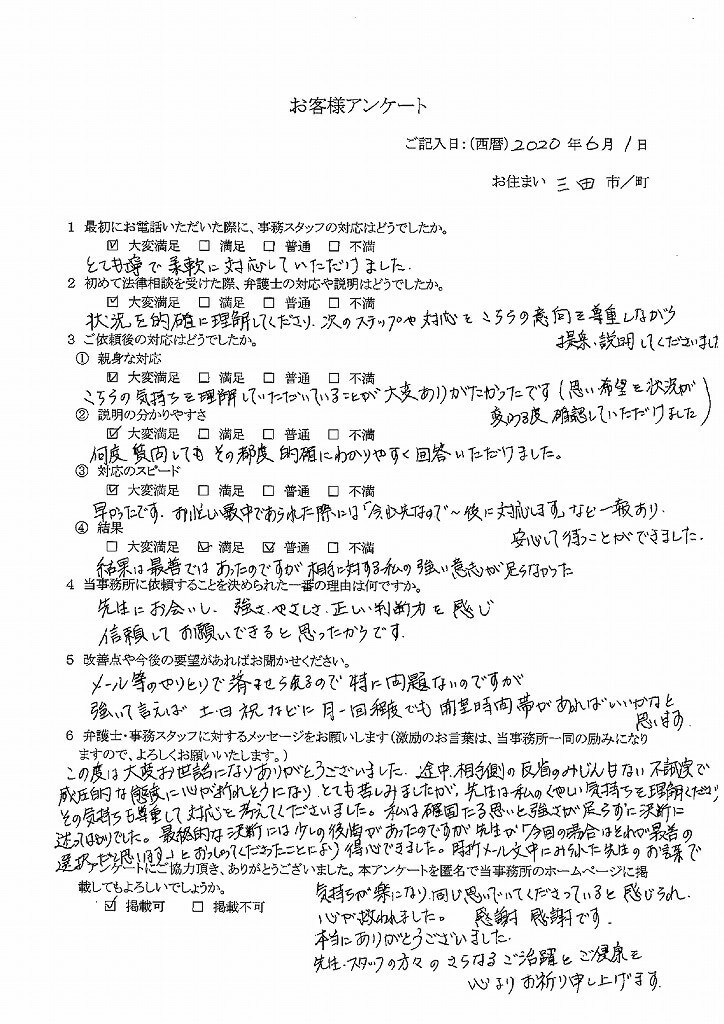 お客様アンケート
ご記入日：（西暦）2020年6月1日
お住まい 三田 市／町
1 最初にお電話いただいた際に、事務スタッフの対応はどうでしたか。
☑ 大変満足 □ 満足 □ 普通 □ 不満
とても丁寧で柔軟に対応していただけました。
2 初めて法律相談を受けた際、弁護士の対応や説明はどうでしたか。
☑ 大変満足 □ 満足 □ 普通 □ 不満
状況を的確に理解してくださり、次のステップや対応をこちらの意向を尊重しながら
提案、説明してくださいました
3 ご依頼後の対応はどうでしたか。
① 親身な対応
☑ 大変満足 □ 満足 □ 普通 □ 不満
こちらの気持ちを理解していただいていることが大変ありがたかったです（思い希望を状況が
変わる度確認していただけました）
② 説明の分かりやすさ
☑ 大変満足 □ 満足 □ 普通 □ 不満
何度質問してもその都度的確にわかりやすく回答いただけました。
③ 対応のスピード
☑ 大変満足 □ 満足 □ 普通 □ 不満
早かったです。お忙しい最中であられた際には「今出先なので～後に対応します」など一報あり、
安心して待つことができました。
④ 結果
□ 大変満足 ☑ 満足 ☑ 普通 □ 不満
結果は最善ではあったのですが相手に対する私の強い意志が足らなかった
4 当事務所に依頼することを決められた一番の理由は何ですか。
先生にお会いし、強さ、やさしさ、正しい判断力を感じ
信頼してお願いできると思ったからです。
5 改善点や今後の要望があればお聞かせください。
メール等のやりとりで済ませられるので特に問題ないのですが
強いて言えば土・日・祝などに月一回程度でも開望時間帯があればいいかなと
思います。
6 弁護士・事務スタッフに対するメッセージをお願いします（激励のお言葉は、当事務所一同の励みになり
ますので、よろしくお願いいたします。）
この度は大変お世話になりありがとうございました。途中、相手側の反省のみじんもない不誠実で
威圧的な態度に心が折れそうになり、とても苦しみましたが、先生は私のくやしい気持ちを理解くださり
その気持ちを尊重して対応を考えてくださいました。私は確固たる思いと強さが足らずに決断に
迷ってばかりでした。最終的な決断には少しの後悔があったのですが先生が「今回の場合はそれが最善の
選択だと思います」とおっしゃてくださったことにより得心できました。時折メール文中にみられた先生のお言葉で
アンケートにご協力頂き、ありがとうございました。本アンケートを匿名で当事務所のホームページに掲
載してもよろしいでしょうか。
☑ 掲載可 □ 掲載不可
気持ちが楽になり、同じ思いでいてくださっていると感じられ、
心が救われました。 感謝 感謝です。
本当にありがとうございました。
先生・スタッフの方々のさらなるご活躍とご健康を
心よりお祈り申し上げます。